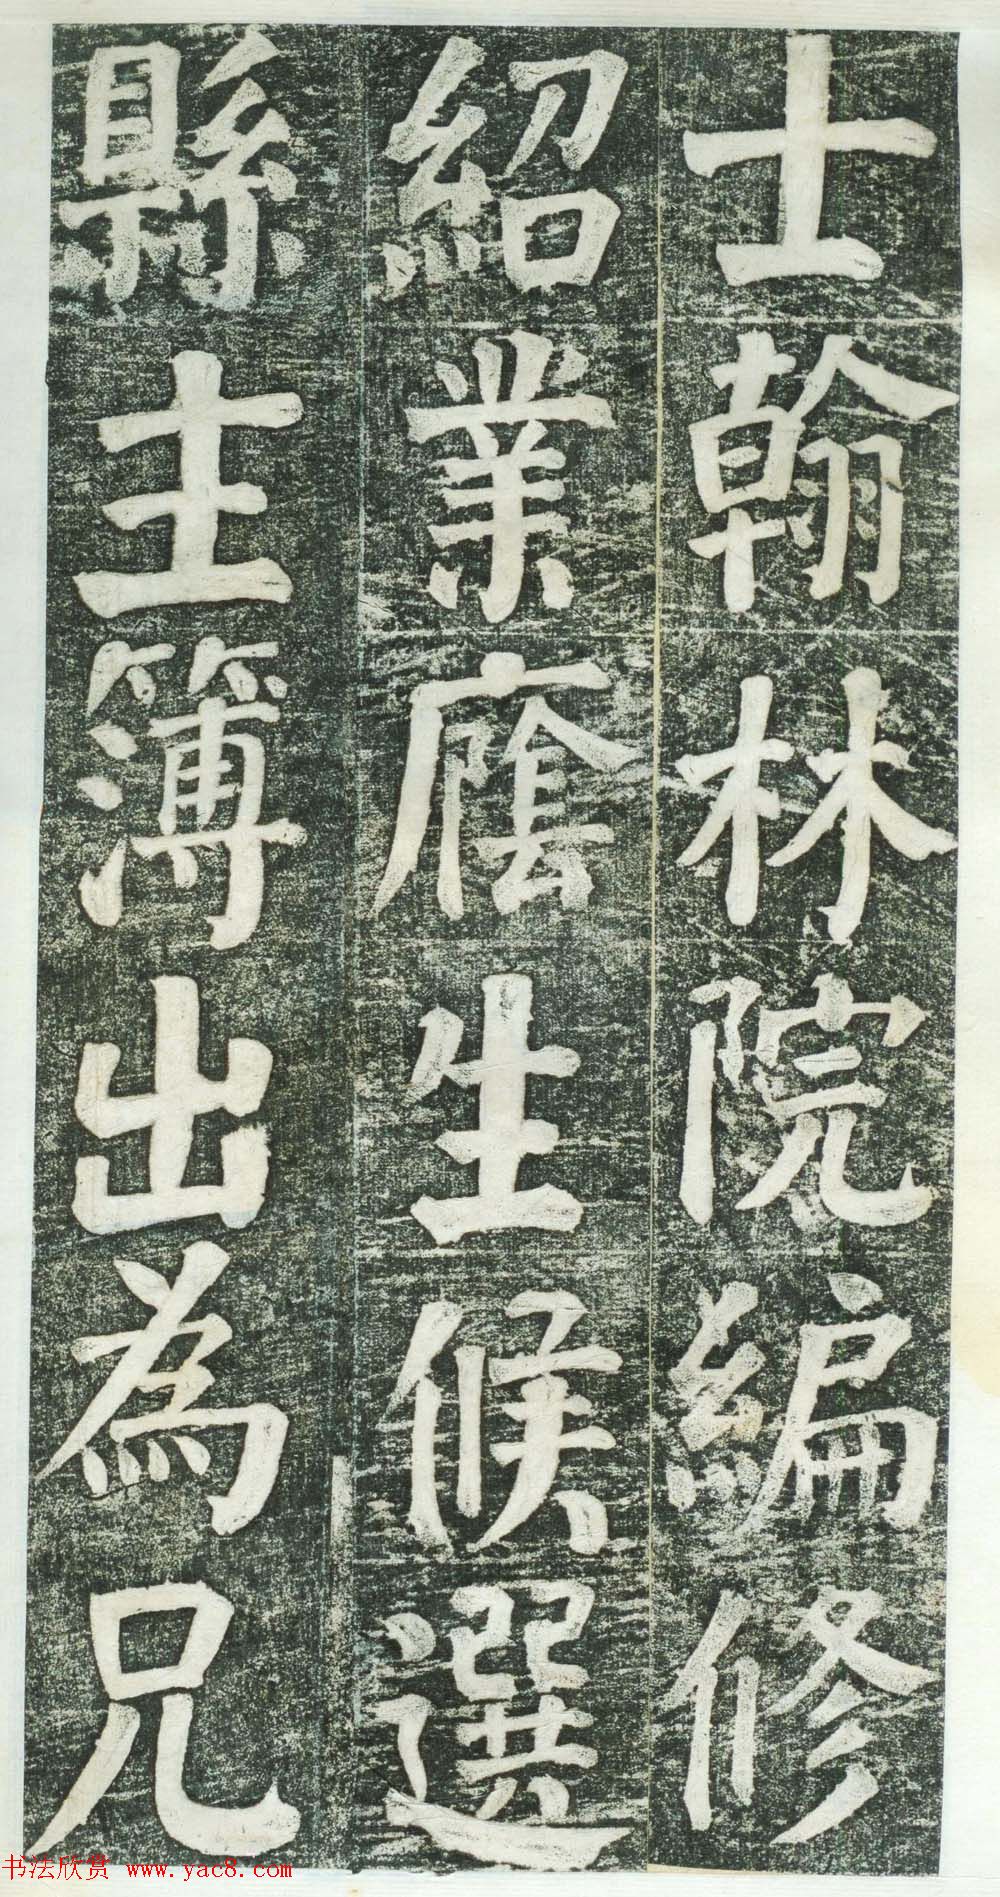 士翰林院編修
紹業廕生候選
縣主簿出為兄
书法欣赏 www.yac8.com